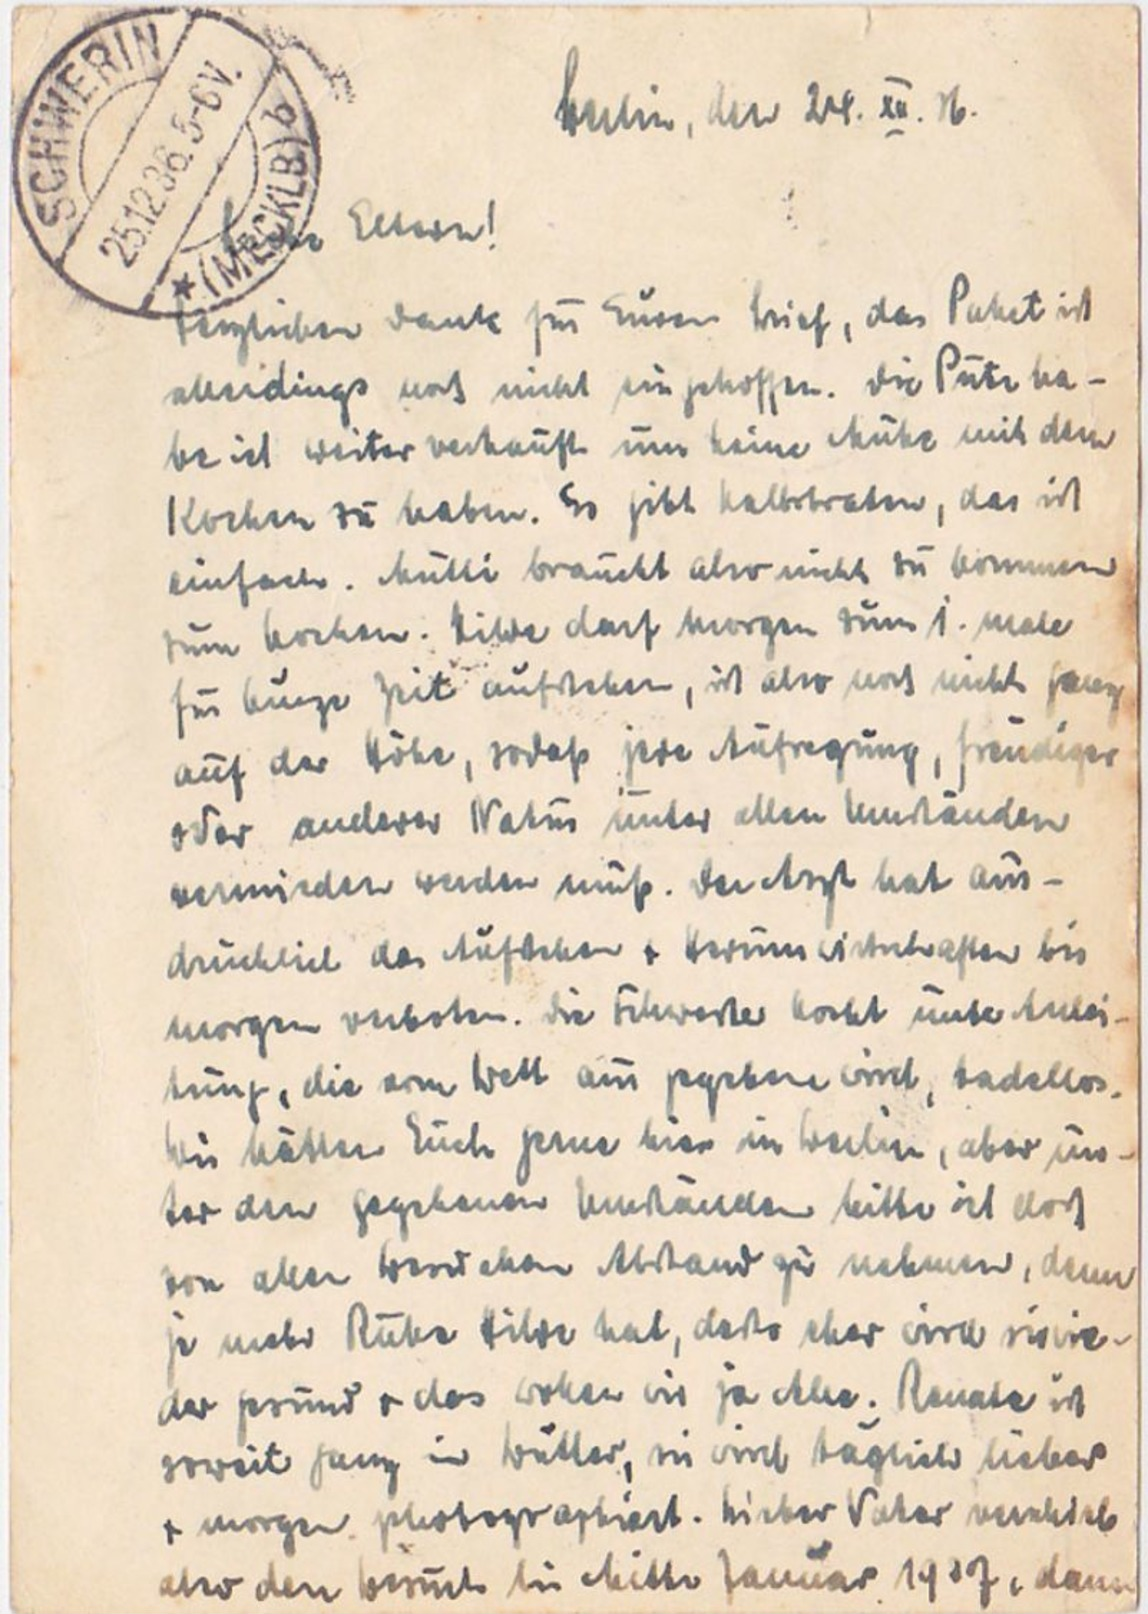 SCHWERIN
25.12.36.5-6V.
* (MECKLB) b
Berlin, den 24. XII. 36.
Liebe Eltern!
Herzlichen Dank für Euren Brief, das Paket ist
allerdings noch nicht eingetroffen. Die Pute ha-
be ich weiter verkauft um keine Mühe mit dem
Kochen zu haben. Es gibt Kalbsbraten, das ist
einfach. Mutti braucht also nicht zu kommen
zum kochen. Hilde darf morgen zum 1. male
für kurze Zeit aufstehen, ist also noch nicht ganz
auf der Höhe, sodaß jede Aufregung, freudiger
oder anderer Natur unter allen Umständen
vermieden werden muß. Der Arzt hat aus-
drücklich das Aufstehen + Herumwirtschaften bis
morgen verboten. Die Schwester kocht unter Anlei-
tung, die vom Bett aus gegeben wird, tadellos.
Wir hätten Euch gerne hier in Berlin, aber un-
ter den gegebenen Umständen bitte ich doch
von allen Besuchen Abstand zu nehmen, denn
je mehr Ruhe Hilde hat, desto eher wird sie wie-
der gesund + das wollen wir ja Alle. Renate ist
soweit ganz in Butter, sie wird täglich lieber
+ morgen photographiert. Lieber Vater verschieb
also den Besuch bis Mitte Januar 1937, dann